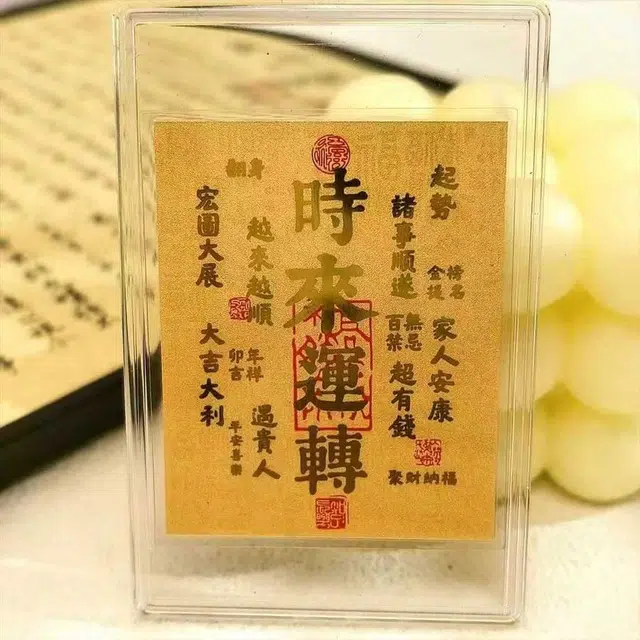 起勢
金榜
提名
家人安康
諸事順遂
百無
禁忌
超有錢
聚財納福
時來運轉
翻身
越來越順
卯年
吉祥
遇貴人
宏圖大展
大吉大利
平安喜樂